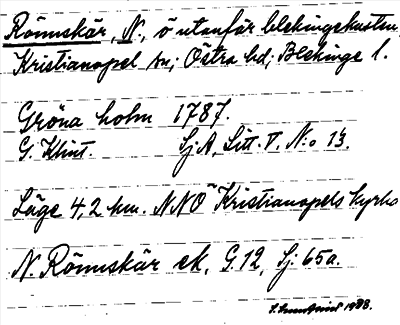 Rönnskär, N., ö utanför blekingekusten,
Kristianopel sn; Östra hd; Blekinge l.
Gröna holm 1787.
G. Klint. Sj.A, Litt. V. N:o 13.
Läge 4,2 km. NNO Kristianopels kyrka
N. Rönnskär ek, G.12, Sj: 65a.
1988.